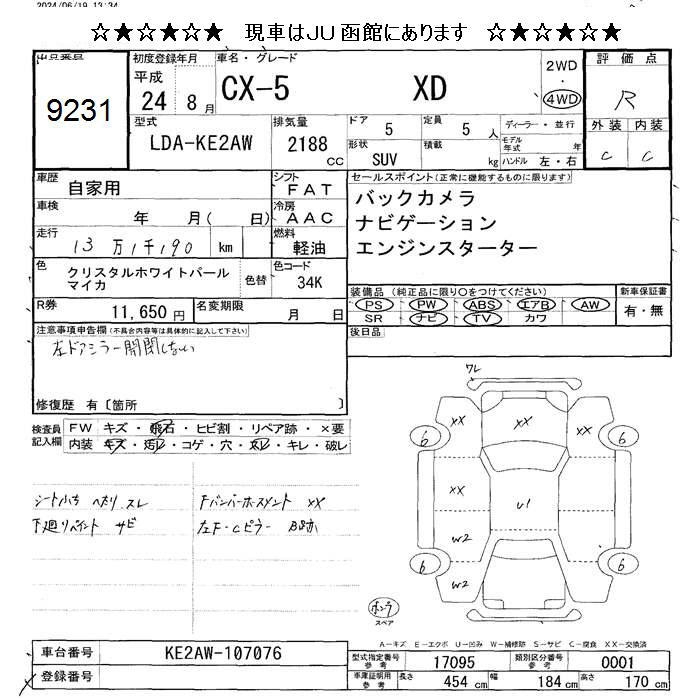 2024/06/19 13:34
☆★☆★☆★ 現車はJU函館にあります ☆★☆★☆★
出品番号
9231
初度登録年月
平成
24 8月
車名・グレード
CX-5 XD
2WD
・
4WD
評価点
R
外装 内装
C C
型式
LDA-KE2AW
排気量
2188
CC
ドア
5
定員
5 人
形状
SUV
積載
kg
ディーラー・並行
モデル年式 年
ハンドル 左・右
車歴
自家用
シフト
FAT
車検
年 月( 日)
冷房
AAC
走行
13万1千190 km
燃料
軽油
色
クリスタルホワイトパール
マイカ
色替
色コード
34K
R券
11,650円
名変期限
月 日
セールスポイント(正常に機能するものに限ります)
バックカメラ
ナビゲーション
エンジンスターター
装備品(純正品に限り○をつけてください)
PS PW ABS エアB AW
SR ナビ TV カワ
新車保証書
有・無
後日品
注意事項申告欄(不具合内容等は具体的に記入して下さい)
左ドアミラー開閉しない
修復歴 有〔箇所 〕
検査員
記入欄
FW キズ・飛石・ヒビ割・リペア跡・×要
内装 キズ・汚レ・コゲ・穴・スレ・キレ・破レ
シート ヘタリ スレ
下廻りペイント サビ
FバンパーホースメントXX
左F・Cピラー B跡
ワレ
XX
XX
XX
6
6
XX
U1
W2
W2
6
6
ホンラ
スペア
A-キズ E-エクボ U-凹み W-補修跡 S-サビ C-腐食 XX-交換済
車台番号
KE2AW-107076
登録番号
型式指定番号
参考
17095
類別区分番号
参考
0001
車庫証明用
参考
長さ
454 cm
幅
184 cm
高さ
170 cm